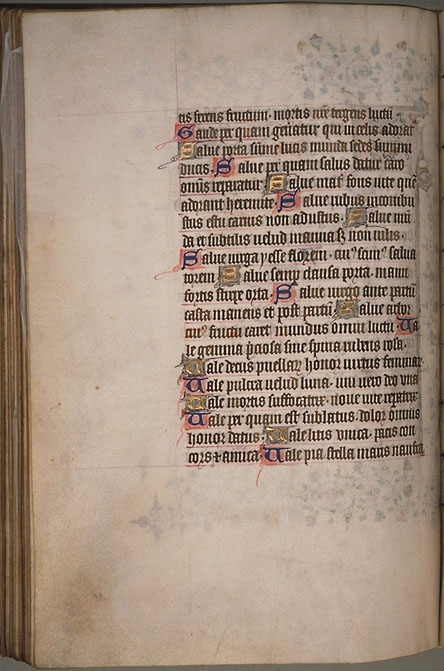 tis ferens fructum · mortis nr̃e tergens luctũ
Gaude per quam gen̾atur qui in celis adorat̾
Salue porta summe lucis munda sedes summi
ducis · Salue per quam salus datur caro
omnis reparatur · Salue mat̾ fons uite quẽ
adorant heremite · Salue rubus incombu
stus estu carnis non adustus · Salue mũ
da et subtilis uelud manna sꝫ non uilis ·
Salue uirga yesse florem · cuiꝰ salua
torem Salue semp̱ clausa porta · manu
fortis stirpe orta · Salue uirgo ante partũ
casta manens et post partũ · Salue arbor
cuiꝰ fructu caret mundus omni luctu · Ua
le gemma p̃ciosa sine spina rubens rosa ·
Uale decus puellaꝝ honor uirtus feminaꝝ
Uale pulcra uelud luna · uni uero deo una
Uale mortis suffocatrix · noue uite repatrix
Uale per quam est sublatus · dolor
honor datus · Uale litis pacis con
cors ⁊ amica Uale pia stella maris naufra